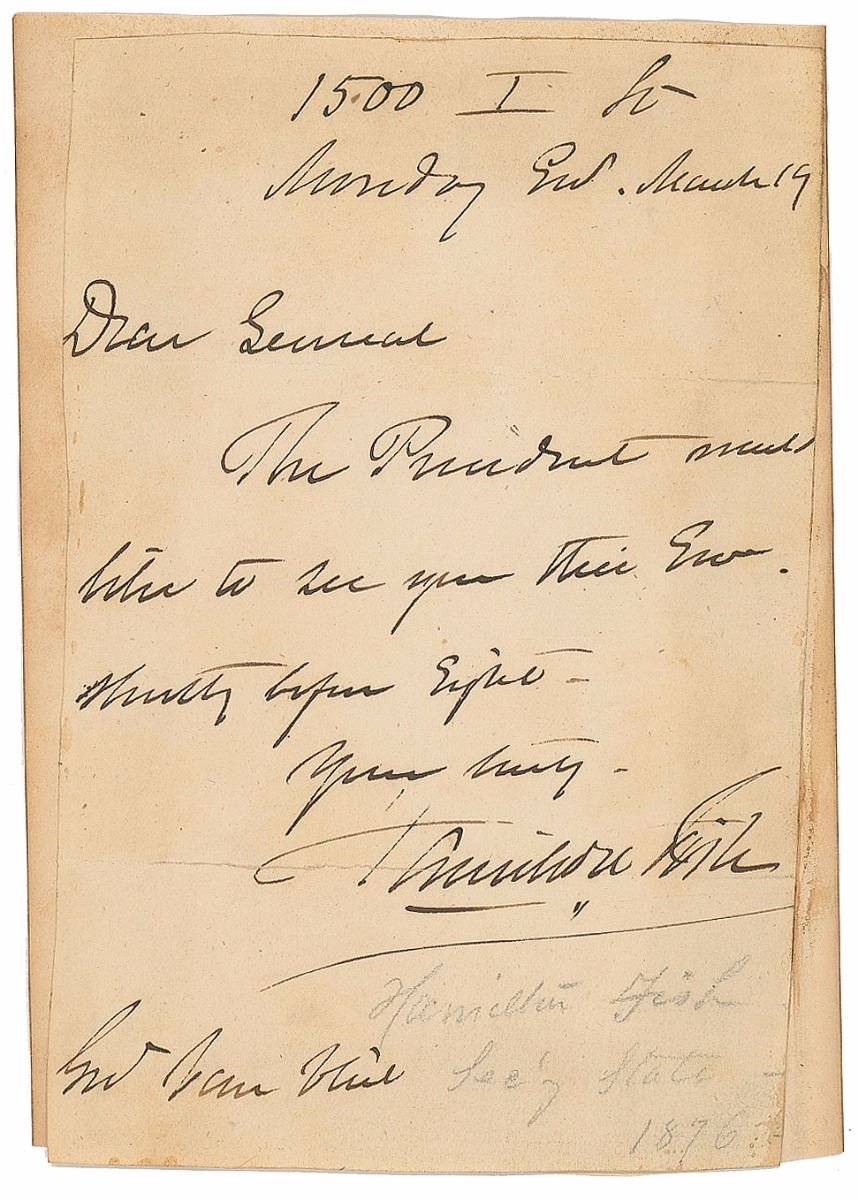 1500 I St
Monday Evg. March 19
Dear General
The President would
like to see you this Evg.
shortly before Eight -
Yours truly -
Hamilton Fish
Hamilton Fish
Genl Van Vliet Sec'y State -
1876